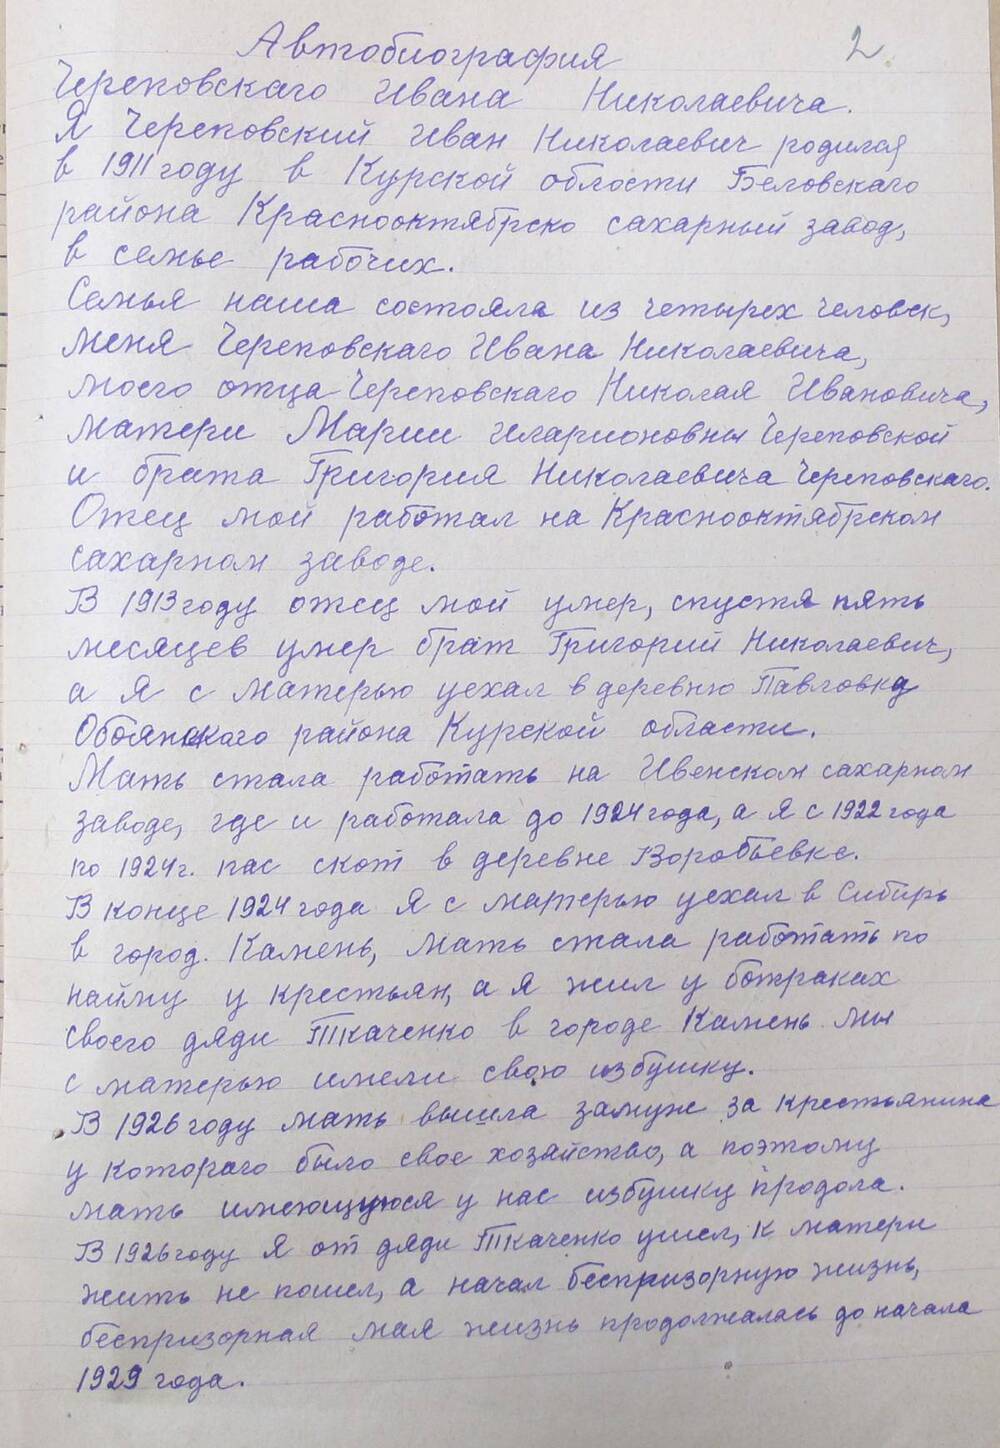 Автобиография
2
Череповскаго Ивана Николаевича.
Я Череповский Иван Николаевич родился
в 1911 году в Курской области Беловскаго
района Краснооктябрско сахарный завод,
в семье рабочих.
Семья наша состояла из четырех человек,
меня Череповскаго Ивана Николаевича,
моего отца Череповскаго Николая Ивановича,
матери Марии Иларионовны Череповской
и брата Григория Николаевича Череповскаго.
Отец мой работал на Краснооктябрском
сахарном заводе.
В 1913 году отец мой умер, спустя пять
месяцев умер брат Григорий Николаевич,
а я с матерью уехал в деревню Павловка
Обоянскаго района Курской области.
Мать стала работать на Ивенском сахарном
заводе, где и работала до 1924 года, а я с 1922 года
по 1924 г. пас скот в деревне Воробьевке.
В конце 1924 года я с матерью уехал в Сибирь
в город. Камень, мать стала работать по
найму у крестьян, а я жил у ботраках
своего дяди Ткаченко в городе Камень мы
с матерью имели свою избушку.
В 1926 году мать вышла замуж за крестьянина
у котораго было свое хозайство, а поэтому
мать имеющуюся у нас избушку продола.
В 1926 году я от дяди Ткаченко ушел, к матери
жить не пошел, а начал беспризорную жизнь,
беспризорная мая жизнь продолжалась до начала
1929 года.